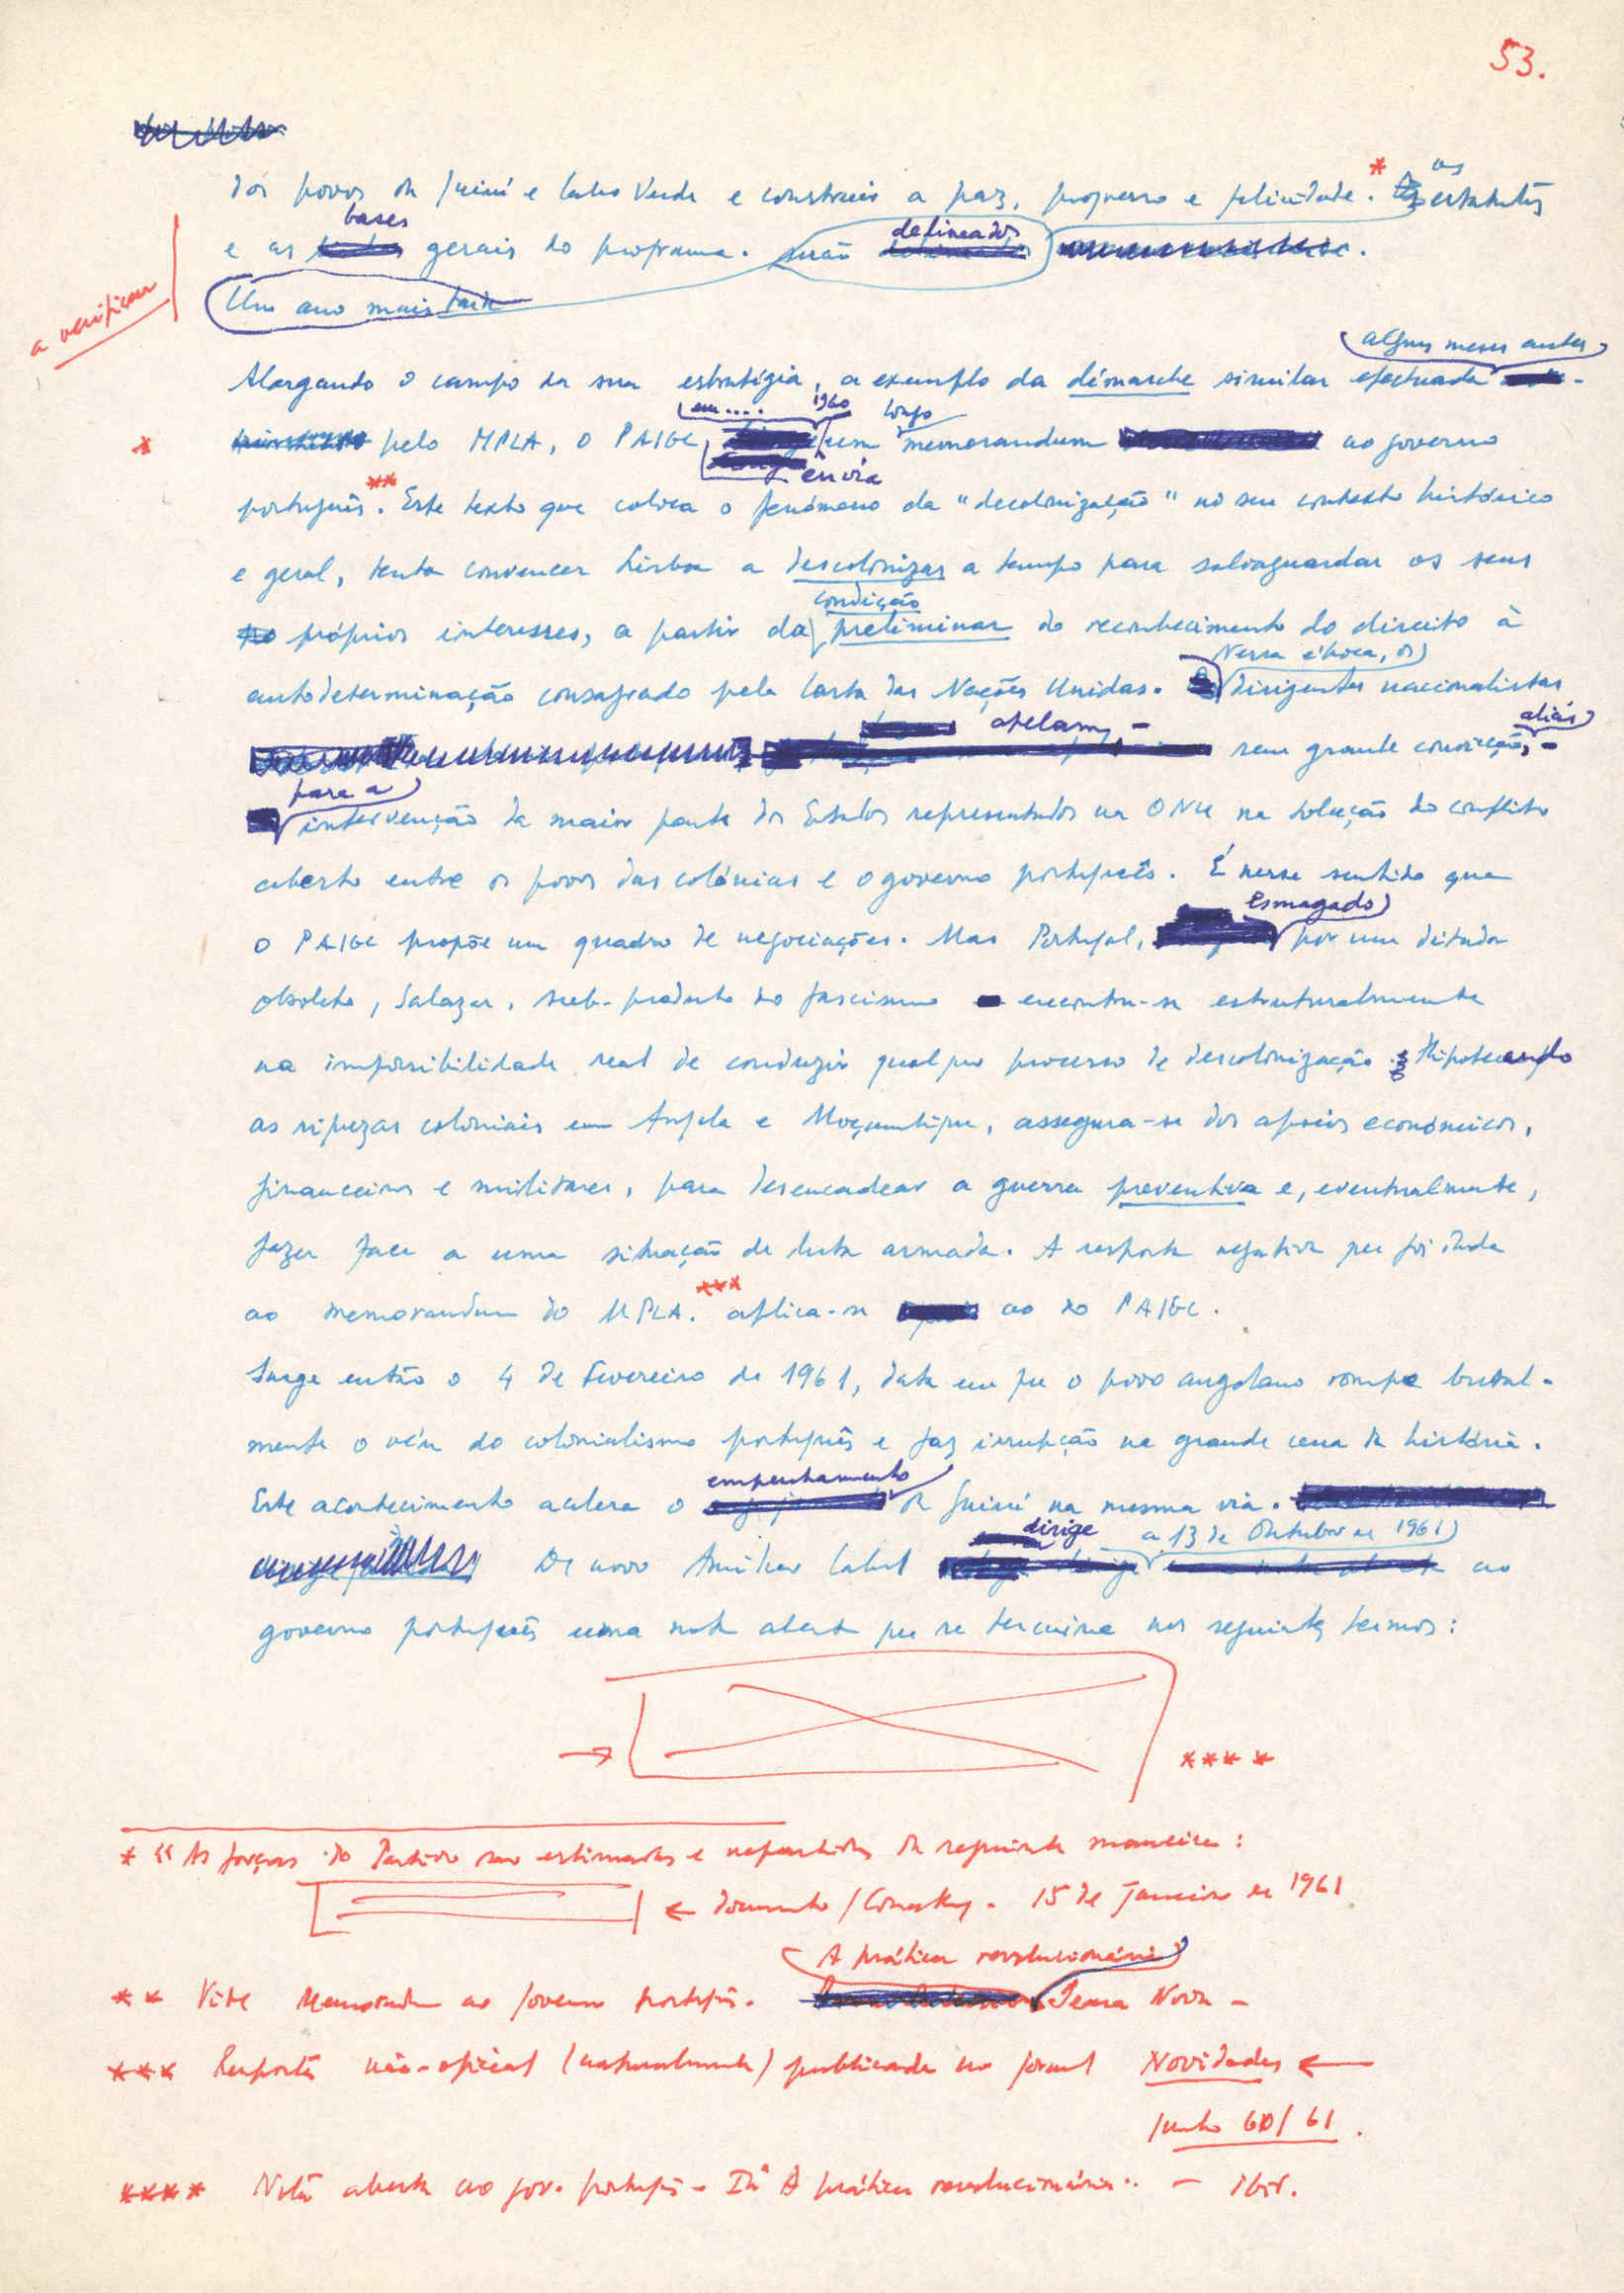 53.
dos povos da Guiné e Cabo Verde e construir a paz, progresso e felicidade. * os estatutos
bases definidos
e as gerais do programa. serão .
Um ano mais tarde
a verificar
alguns meses antes
Alargando o campo da sua estratégia, a exemplo da démarche similar efectuada
em.... 1960 longo
* pelo MPLA, o PAIGC um memorandum ao governo
envia
português. ** Este texto que coloca o fenómeno da "decolonização" no seu contexto histórico
e geral, tenta convencer Lisboa a descolonizar a tempo para salvaguardar os seus
condição
próprios interesses, a partir da preliminar do reconhecimento do direito à
Nessa época, os
autodeterminação consagrado pela Carta das Nações Unidas. dirigentes nacionalistas
apelam, - aliás
sem grande convicção, -
para a
intervenção da maior parte dos Estados representados na ONU na solução do conflito
aberto entre os povos das colónias e o governo português. É nesse sentido que
esmagado
o PAIGC propõe um quadro de negociações. Mas Portugal, por um ditador
obsoleto, Salazar, sub-produto do fascismo encontra-se estruturalmente
na impossibilidade real de conduzir qualquer processo de descolonização. Hipotecando
as riquezas coloniais em Angola e Moçambique, assegura-se dos apoios económicos,
financeiros e militares, para desencadear a guerra preventiva e, eventualmente,
fazer face a uma situação de luta armada. A resposta negativa que foi dada
ao memorandum do MPLA. *** aplica-se ao do PAIGC.
Surge então o 4 de Fevereiro de 1961, data em que o povo angolano rompe brutal-
mente o véu do colonialismo português e faz irrupção na grande cena da história.
empenhamento
Este acontecimento acelera o da Guiné na mesma via.
dirige a 13 de Outubro de 1961
De novo Amílcar Cabral ao
governo português uma nota aberta que se termina nos seguintes termos:
→ ****
* "As forças do Partido são estimadas e repartidas da seguinte maneira:
← documento / Conakry. 15 de Janeiro de 1961
A prática revolucionária
** Vide Memorandum ao Governo português. Seara Nova -
*** Resposta não-oficial (naturalmente) publicada no jornal Novidades ←
Junho 60/61.
**** Nota aberta ao gov. português - In A prática revolucionária.. - ibid.